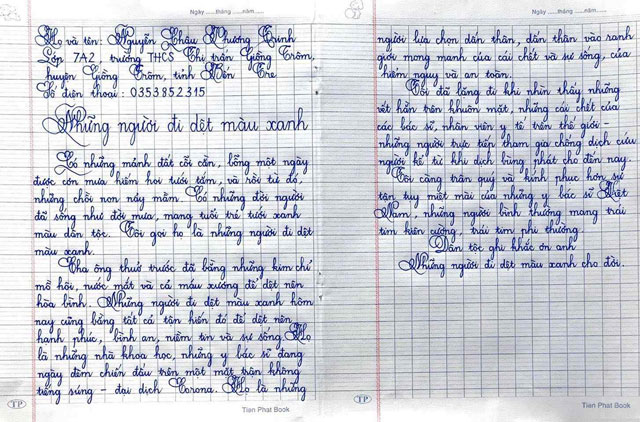 Ngày ....tháng ....năm....
Họ và tên: Nguyễn Châu Phương Trinh
Lớp 7A2, trường THCS Thị trấn Giồng Trôm,
huyện Giồng Trôm, tỉnh Bến Tre
Số điện thoại: 0353852315
Những người đi dệt màu xanh
Có những mảnh đất cỗi cằn, bỗng một ngày
được cơn mưa hiếm hoi tưới tắm, và rồi từ đó,
những chồi non nảy mầm. Có những đời người
đã sống như đời mưa, mang tuổi trẻ tưới xanh
màu dân tộc. Tôi gọi họ là những người đi dệt
màu xanh.
Cha ông thuở trước đã bằng những kim chỉ
mồ hôi, nước mắt và cả máu xương để dệt nên
hòa bình. Những người đi dệt màu xanh hôm
nay cũng bằng tất cả tận hiến đó để dệt nên
hạnh phúc, bình an, niềm tin và sự sống. Họ
là những nhà khoa học, những y bác sĩ đang
ngày đêm chiến đấu trên một mặt trận không
tiếng súng - đại dịch Corona. Họ là những
TP
Tien Phat Book
Ngày ....tháng ....năm....
người lựa chọn dấn thân, dấn thân vào ranh
giới mong manh của cái chết và sự sống, của
hiểm nguy và an toàn.
Tôi đã lặng đi khi nhìn thấy những
vết hằn trên khuôn mặt, những cái chết của
các bác sĩ, nhân viên y tế trên thế giới -
những người trực tiếp tham gia chống dịch cứu
người kể từ khi dịch bùng phát cho đến nay.
Tôi càng trân quý và kính phục hơn sự
tận tụy miệt mài của những y bác sĩ Việt
Nam, những người bình thường mang trái
tim kiên cường, trái tim phi thường.
Dân tộc ghi khắc ơn anh
Những người đi dệt màu xanh cho đời.
TP
Tien Phat Book